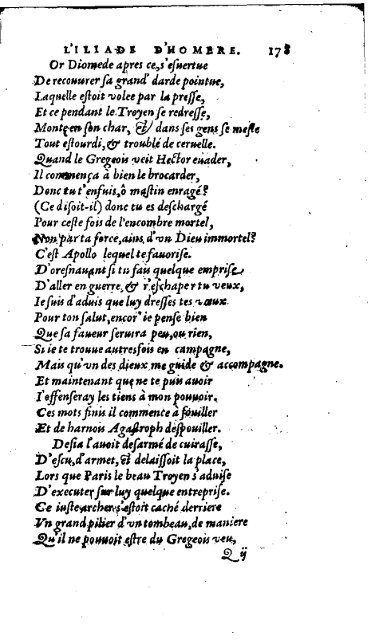 L'ILIADE D'HOMERE. 178
Or Diomede apres ce, s'esuertue
De recouurer sa grand' darde pointue,
Laquelle estoit volee par la presse,
Et ce pendant le Troyen se redresse,
Monte en son char, & dans ses gens se mesle
Tout estourdi, & troublé de ceruelle.
Quand le Gregeois veit Hector euader,
Il commença à bien le brocarder,
Donc tu t'enfuis, ô mastin enragé?
(Ce disoit-il) donc tu es deschargé
Pour ceste fois de l'encombre mortel,
Non par ta force, ains d'vn Dieu immortel?
C'est Apollo lequel te fauorise.
D'oresnauant si tu fais quelque emprise
D'aller en guerre, & r'eschaper tu veux,
Ie suis d'aduis que luy dresses tes vœux.
Pour ton salut, encor' ie pense bien
Que sa faueur seruira peu, ou rien,
Si ie te trouue autresfois en campagne,
Mais qu'vn des dieux me guide & accompagne.
Et maintenant que ne te puis auoir
I'offenseray les tiens à mon pouuoir.
Ces mots finis il commence à fouiller
Et de harnois Agastroph despouiller.
Desia l'auoit desarmé de cuirasse,
D'escu, d'armet, & delaissoit la place,
Lors que Paris le beau Troyen s'aduise
D'executer sur luy quelque entreprise.
Ce iuste archer s'estoit caché derriere
Vn grand pilier d'vn tombeau, de maniere
Qu'il ne pouuoit estre du Gregeois veu,
Q ij